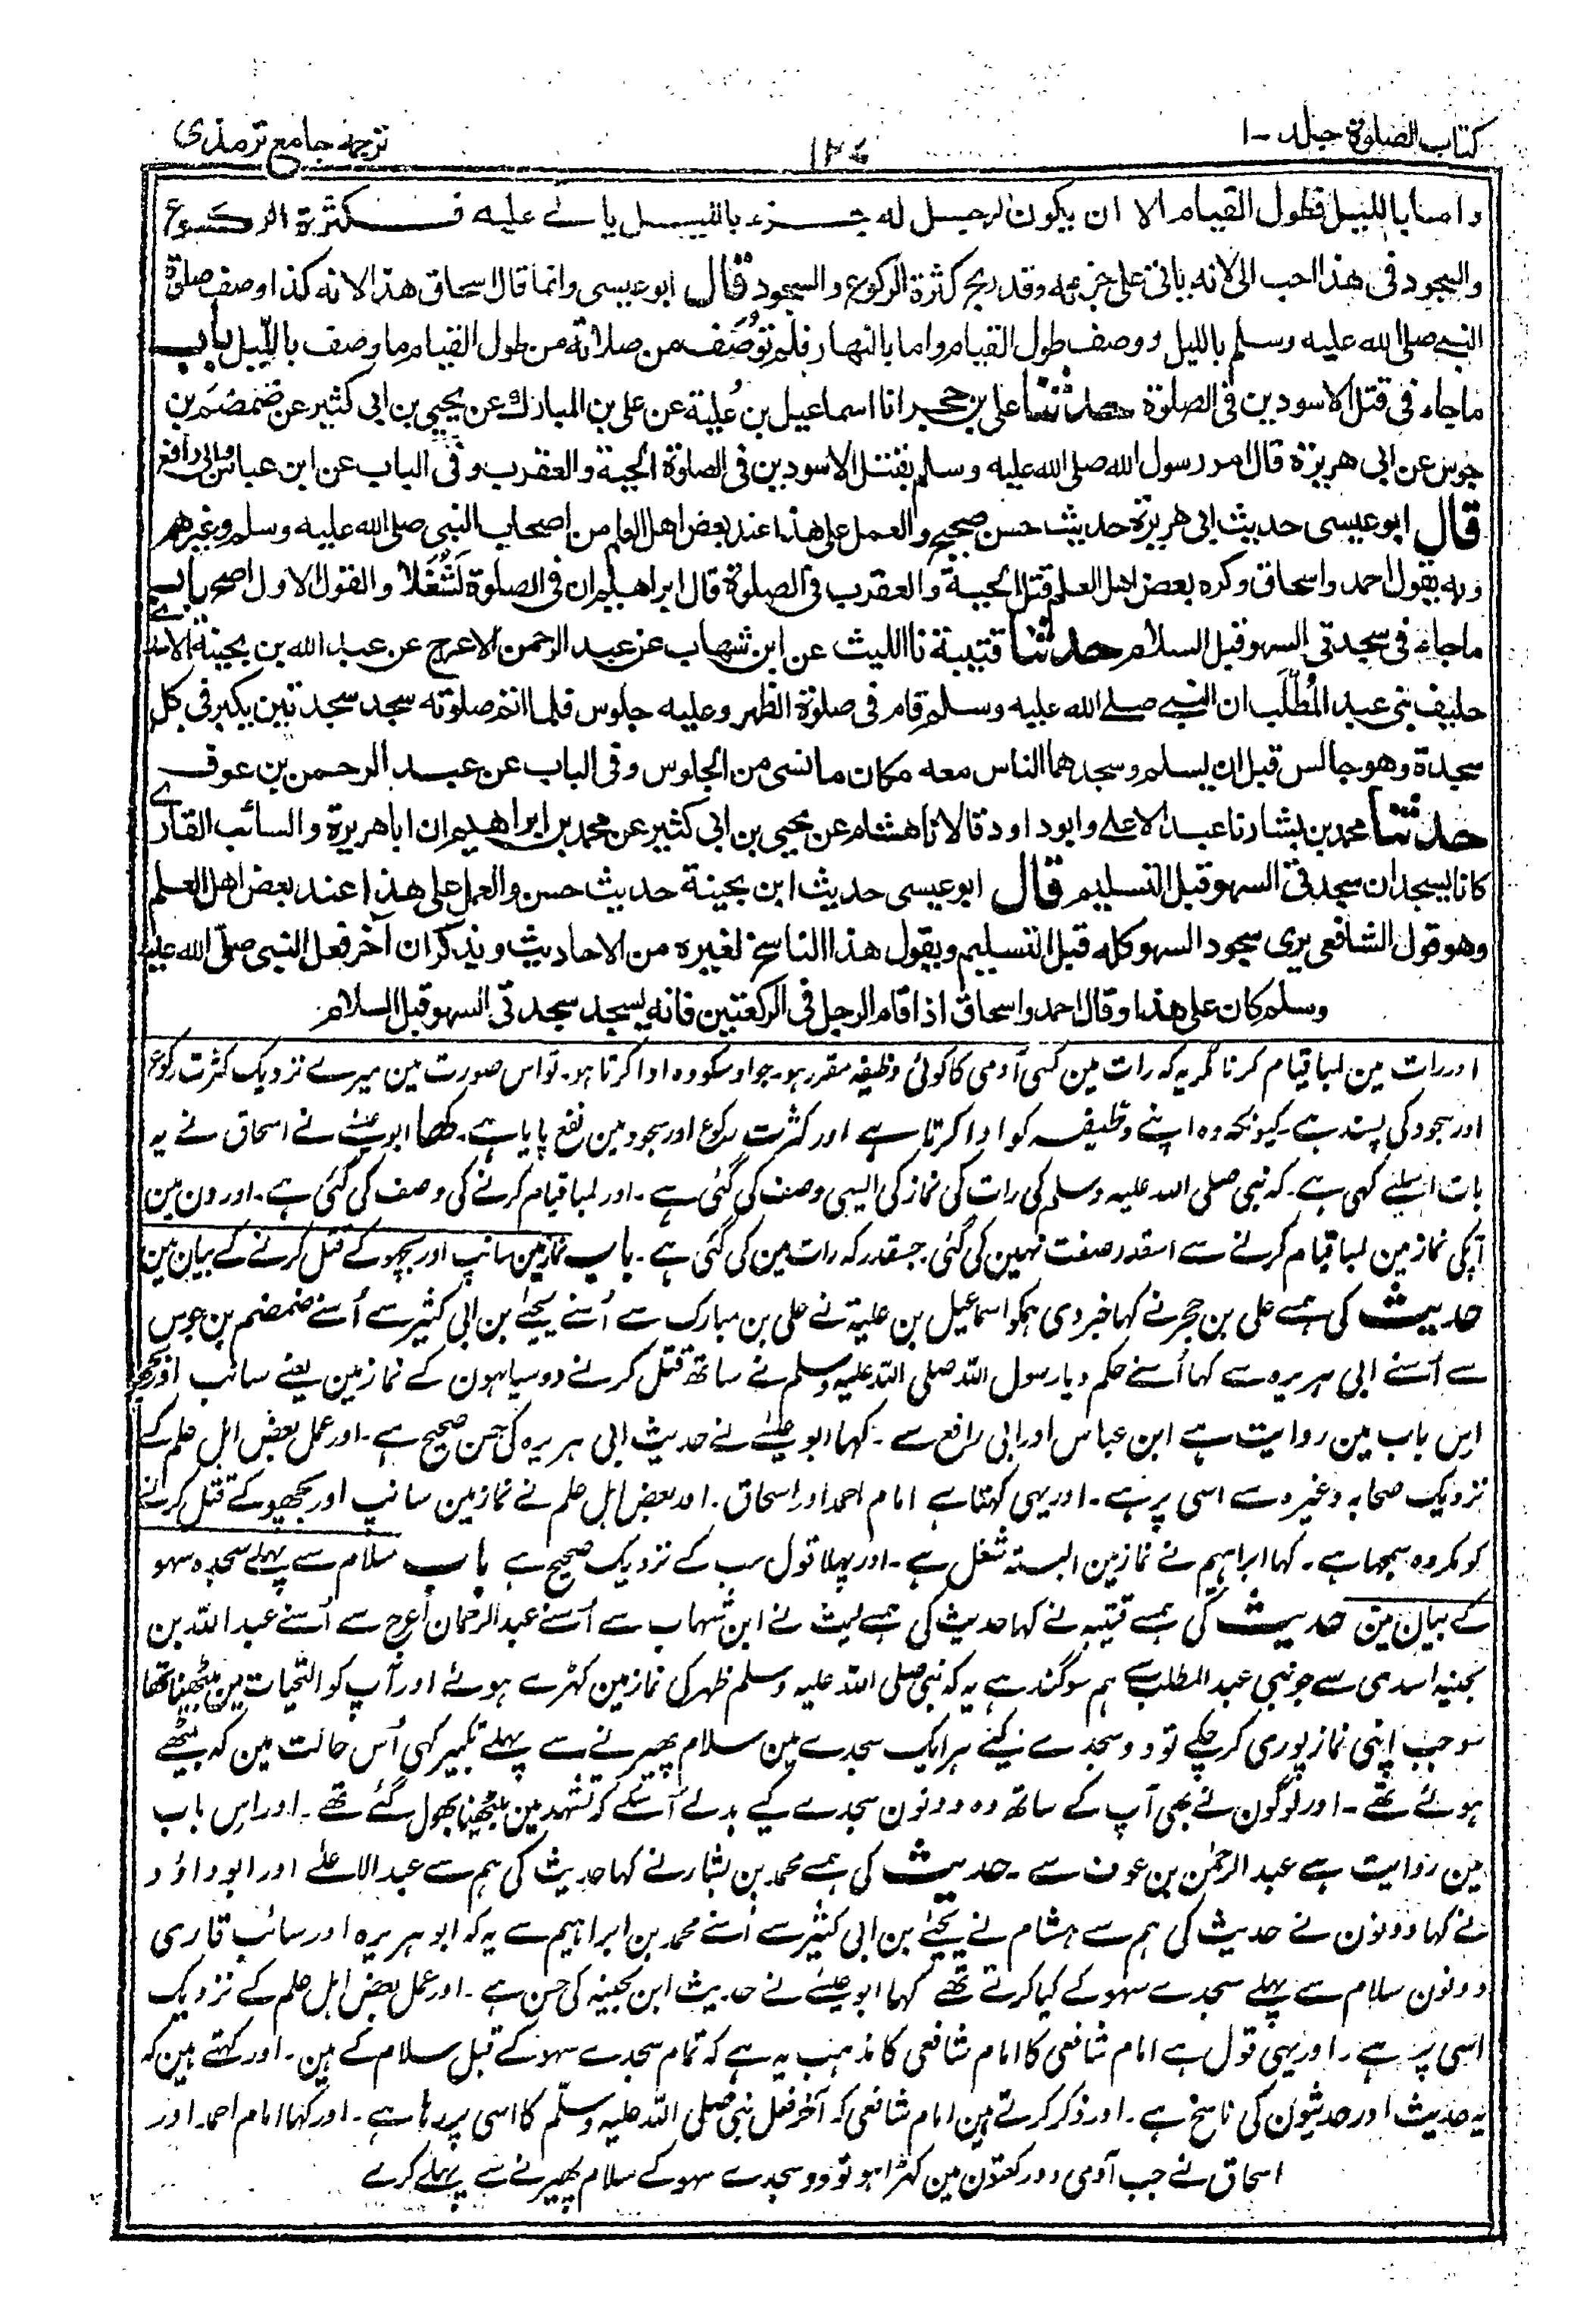 کتاب الصلوٰۃ جلد-۱
ترجمہ جامع ترمذی
واما بالليل فطول القيام الا ان يكون لرجل له جزء بالليل ياتى عليه فكثرة الركوع
والسجود فى هذا احب الى لانه ياتى على جزءه وقد ربح كثرة الركوع والسجود قال ابو عيسى وانما قال اسحاق هذا لانه كذا وصف صلوة
النبى صلى الله عليه وسلم بالليل ووصف طول القيام واما بالنهار فلم توصف من صلاته من طول القيام ما وصف بالليل باب
ماجاء فى قتل الاسودين فى الصلوة حدثنا على بن حجر انا اسماعيل بن علية عن على بن المبارك عن يحيى بن ابى كثير عن ضمضم بن
جوس عن ابى هريرة قال امر رسول الله صلى الله عليه وسلم بقتل الاسودين فى الصلوة الحية والعقرب وفى الباب عن ابن عباس وابى رافع
قال ابو عيسى حديث ابى هريرة حديث حسن صحيح والعمل على هذا عند بعض اهل العلم من اصحاب النبى صلى الله عليه وسلم وغيرهم
وبه يقول احمد واسحاق وكره بعض اهل العلم قتل الحية والعقرب فى الصلوة قال ابراهيم ان فى الصلوة لَشُغلا والقول الاول اصح باب
ماجاء فى سجدتى السهو قبل السلام حدثنا قتيبة نا الليث عن ابن شهاب عن عبد الرحمن الاعرج عن عبد الله بن بحينة الاسدى
حليف بنى عبد المُطَّلَب ان النبى صلى الله عليه وسلم قام فى صلوة الظهر وعليه جلوس فلما اتم صلوته سجد سجدتين يكبر فى كل
سجدة وهو جالس قبل ان يسلم وسجدهما الناس معه مكان ما نسى من الجلوس وفى الباب عن عبد الرحمن بن عوف
حدثنا محمد بن بشار نا عبد الاعلى وابو داود قالا نا هشام عن يحيى بن ابى كثير عن محمد بن ابراهيم ان ابا هريرة والسائب القارى
كانا يسجدان سجدتى السهو قبل التسليم قال ابو عيسى حديث ابن بحينة حديث حسن والعمل على هذا عند بعض اهل العلم
وهو قول الشافعى يرى سجود السهو كله قبل التسليم ويقول هذا الناسخ لغيره من الاحاديث ويذكر ان آخر فعل النبى صلى الله عليه
وسلم كان على هذا وقال احمد واسحاق اذا قام الرجل فى الركعتين فانه يسجد سجدتى السهو قبل السلام
اور رات مین لمبا قیام کرنا مگر یہ کہ رات مین کسی آدمی کا کوئی وظیفہ مقرر ہو۔ جو اوسکو وہ ادا کرتا ہو۔ تو اس صورت مین میرے نزدیک کثرت رکوع
اور سجود کی پسند ہے۔ کیونکہ وہ اپنے وظیفہ کو ادا کرتا ہے اور کثرت رکوع اور سجود مین نفع پایا ہے۔ کہا ابو عیسےٰ نے اسحاق نے یہ
بات اسلئے کہی ہے۔ کہ نبی صلی اللہ علیہ وسلم کی رات کی نماز کی ایسی وصف کی گئی ہے۔ اور لمبا قیام کرنے کی وصف کی گئی ہے۔ اور دن مین
آپکی نماز مین لمبا قیام کرنے سے اسقدر صفت نہین کی گئی جسقدر کہ رات مین کی گئی ہے۔ باب نماز مین سانپ اور بچھو کے قتل کرنے کے بیان مین
حدیث کی ہمسے علی بن حجر نے کہا خبر دی ہمکو اسماعیل بن علیۃ نے علی بن مبارک سے اُسنے یحیےٰ بن ابی کثیر سے اُسنے ضمضم بن جوس
سے اُسنے ابی ہریرہ سے کہا اُسنے حکم دیا رسول اللہ صلی اللہ علیہ وسلم نے ساتھ قتل کرنے دو سیاہون کے نماز مین یعنے سانپ اور بچھو
اس باب مین روایت ہے ابن عباس اور ابی رافع سے۔ کہا ابو عیسےٰ نے حدیث ابی ہریرہ کی حسن صحیح ہے۔ اور عمل بعض اہل علم کے
نزدیک صحابہ وغیرہ سے اسی پر ہے۔ اور یہی کہتا ہے امام احمد اور اسحاق۔ اور بعض اہل علم نے نماز مین سانپ اور بچھو کے قتل کرنے
کو مکروہ سمجھا ہے۔ کہا ابراہیم نے نماز مین البتہ شغل ہے۔ اور پہلا قول سب کے نزدیک صحیح ہے باب سلام سے پہلے سجدہ سہو
کے بیان مین حدیث کی ہمسے قتیبہ نے کہا حدیث کی ہمسے لیث نے ابن شہاب سے اُسنے عبد الرحمان اعرج سے اُسنے عبد اللہ بن
بحینہ اسدی سے جو بنی عبد المطلب کے ہم سوگند ہے یہ کہ نبی صلی اللہ علیہ وسلم ظہر کی نماز مین کھڑے ہوئے اور آپ کو التحیات مین بیٹھنا تھا
سو جب اپنی نماز پوری کر چکے تو دو سجدے کیئے ہر ایک سجدے مین سلام پھیرنے سے پہلے تکبیر کہی اُس حالت مین کہ بیٹھے
ہوئے تھے۔ اور لوگون نے بھی آپ کے ساتھ وہ دونون سجدے کیے بدلے اُسکے کہ تشہد مین بیٹھنا بھول گئے تھے۔ اور اس باب
مین روایت ہے عبد الرحمٰن بن عوف سے۔ حدیث کی ہمسے محمد بن بشار نے کہا حدیث کی ہم سے عبد الاعلےٰ اور ابو داؤد
نے کہا دونون نے حدیث کی ہم سے ہشام نے یحیےٰ بن ابی کثیر سے اُسنے محمد بن ابراہیم سے یہ کہ ابو ہریرہ اور سائب قاری
دونون سلام سے پہلے سجدے سہو کے کیا کرتے تھے کہا ابو عیسےٰ نے حدیث ابن بحینہ کی حسن ہے۔ اور عمل بعض اہل علم کے نزدیک
اسی پر ہے۔ اور یہی قول ہے امام شافعی کا امام شافعی کا مذہب یہ ہے کہ تمام سجدے سہو کے قبل سلام کے ہین۔ اور کہتے ہین کہ
یہ حدیث اور حدیثون کی ناسخ ہے۔ اور ذکر کرتے ہین امام شافعی کہ آخر فعل نبی صلی اللہ علیہ وسلّم کا اسی پر رہا ہے۔ اور کہا امام احمد اور
اسحاق نے جب آدمی دو رکعتون مین کھڑا ہو تو دو سجدے سہو کے سلام پھیرنے سے پہلے کرے